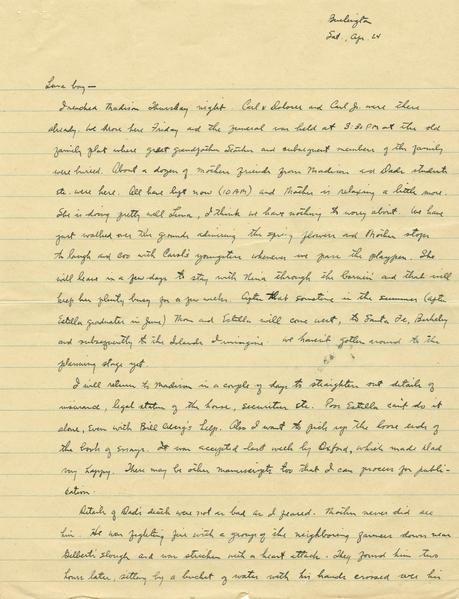 Burlington
Sat., Apr. 24
Luna boy —
I reached Madison Thursday night. Carl & Dolores and Carl Jr. were there
already. We drove here Friday and the funeral was held at 3:30 PM at the old
family plot where great grandfather and subsequent members of the family
were buried. About a dozen of mothers friends from Madison and Dads students
etc. were here. All have left now (10 AM) and Mother is relaxing a little more.
She is doing pretty well Luna, I think we have nothing to worry about. We have
just walked over the grounds admiring the spring flowers and Mother stops
to laugh and coo with Carol's youngsters whenever we pass the playpen. She
will leave in a few days to stay with Nina through the and that will
keep her plenty busy for a few weeks. After that sometime in the summer (after
Estella graduates in June) Mom and Estella will come west, to Santa Fe, Berkeley
and subsequently to the Islands I imagine. We haven't gotten around to the
planning stage yet.
I will return to Madison in a couple of days to straighten out details of
insurance, legal status of the house, securities etc. Poor Estella can't do it
alone, even with Bill help. Also I want to pick up the loose ends of
the book of essays. It was accepted last week by Oxford, which made Dad
very happy. There may be other manuscripts too that I can process for publi-
cation.
Details of Dad's death were not as bad as I feared. Mother never did see
him. He was fighting fire with a group of the neighboring farmers down near
Gilbert's slough and was stricken with a heart attack. They found him two
hours later, sitting by a bucket of water with his hands crossed over his